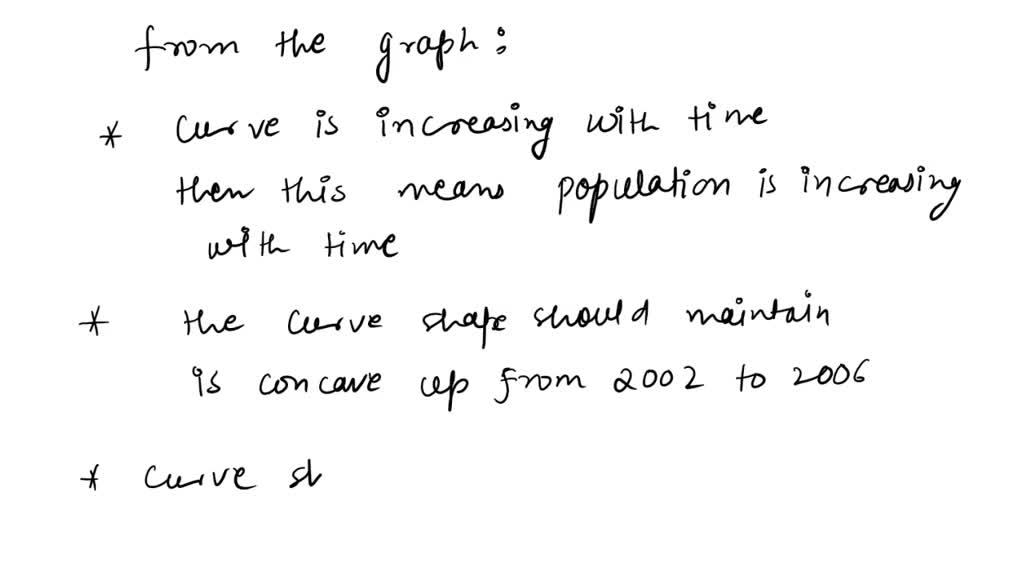 from the graph:
* curve is increasing with time
then this means population is increasing
with time
* the curve shape should maintain
is concave up from 2002 to 2006
* curve sh